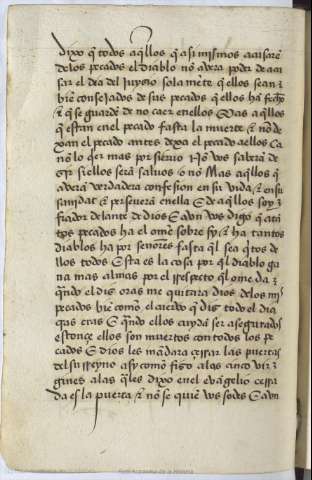 dixo q̃ todos aq̃llos q̃ asi mismos acusarẽ
delos pecados el diablo nõ avera poder de acu
sar el dia del juyzio solamẽte q̃ ellos sean
biẽ consejados de sus pecados q̃ ellos hã fecho
& q̃ se guardẽ de no caer enellos Mas aq̃llos
q̃ estan enel pecado fasta la muerte & nõ de
xan el pecado antes dexa el pecado aellos Ca
nõ lo mas por sieruo Nõ vos sabria de
zir si ellos serã saluos o nõ Mas aq̃llos q̃
averã verdadera confesion en su vida & en su
sanidat & perseverã enella E de aq̃llos soy
fiador delante de dios E avn vos digo q̃ atã
tos pecados ha el ome sobre sy & ha tantos
diablos ha por señores fasta q̃l sea q̃to de
llos todos Esta es la cosa por q̃l diablo ga
na mas almas por el respecto q̃l ome da
q̃ndo el dis cras me quitara dios delos mis
pecados biẽ como el cuervo q̃ dis todo el dia
cras cras E q̃ndo ellos cuydã ser asegurados
estonçe ellos son muertos con todos los pe
cados E dios les mãdara çerrar las puertas
del su rreyno asy como fizo alas çinco vir
gines alas q̃les dixo enel euãgelio çerra
da es la puerta & nõ se quiẽ vos sodes E avn
Real Academia de la Historia